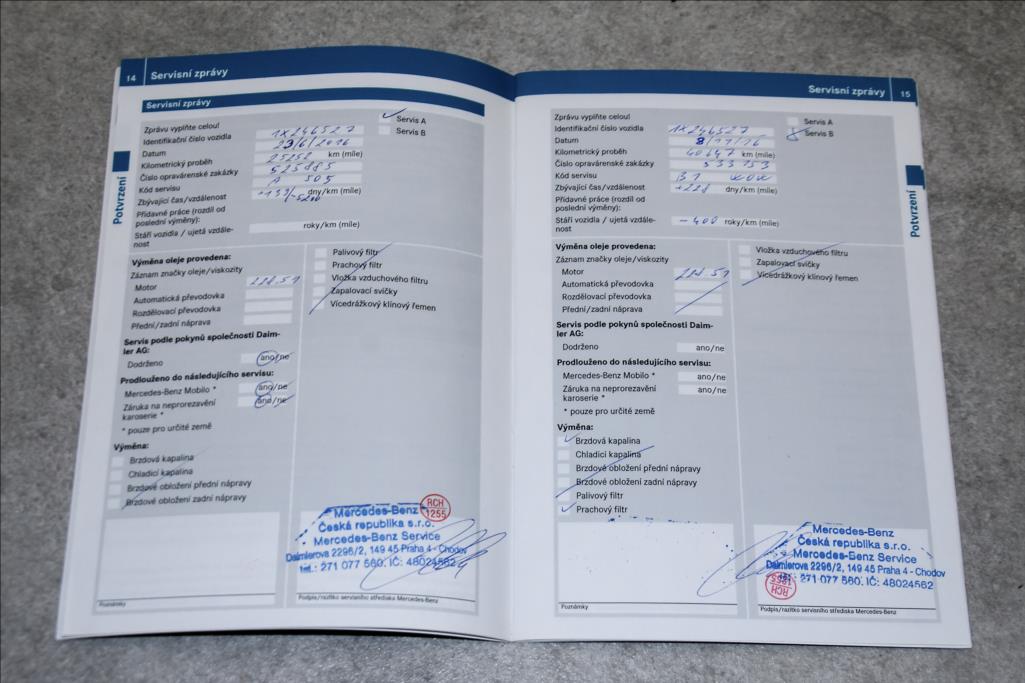 14 Servisní zprávy
Servisní zprávy
Zprávu vyplňte celou!
Servis A
Identifikační číslo vozidla 1X246527
Servis B
Datum 23/6/2016
Kilometrický proběh 25258 km (míle)
Číslo opravárenské zakázky 525885
Kód servisu A 505
Zbývající čas/vzdálenost dny/km (míle)
Přídavné práce (rozdíl od
poslední výměny):
Stáří vozidla / ujetá vzdále-
nost
roky/km (míle)
Potvrzení
Výměna oleje provedena:
Záznam značky oleje/viskozity
Motor
Automatická převodovka
Rozdělovací převodovka
Přední/zadní náprava
Servis podle pokynů společnosti Daim-
ler AG:
Dodrženo ano/ne
Prodlouženo do následujícího servisu:
Mercedes-Benz Mobilo * ano/ne
Záruka na neprorezavění
karoserie *
ano/ne
* pouze pro určité země
Výměna:
Brzdová kapalina
Chladicí kapalina
Brzdové obložení přední nápravy
Brzdové obložení zadní nápravy
Palivový filtr
Prachový filtr
Vložka vzduchového filtru
Zapalovací svíčky
Vícedrážkový klínový řemen
RCH
1255
Mercedes-Benz
Česká republika s.r.o.
Mercedes-Benz Service
Daimlerova 2296/2, 149 45 Praha 4 - Chodov
tel.: 271 077 560. IČ: 48024562
Poznámky
Podpis/razítko servisního střediska Mercedes-Benz
Servisní zprávy 15
Zprávu vyplňte celou!
Servis A
Identifikační číslo vozidla 1X246527
Servis B
Datum 8/11/16
Kilometrický proběh 40647 km (míle)
Číslo opravárenské zakázky 533153
Kód servisu B1
Zbývající čas/vzdálenost +228 dny/km (míle)
Přídavné práce (rozdíl od
poslední výměny):
Stáří vozidla / ujetá vzdále-
nost
-400 roky/km (míle)
Potvrzení
Výměna oleje provedena:
Záznam značky oleje/viskozity
Motor
Automatická převodovka
Rozdělovací převodovka
Přední/zadní náprava
Servis podle pokynů společnosti Daim-
ler AG:
Dodrženo ano/ne
Prodlouženo do následujícího servisu:
Mercedes-Benz Mobilo * ano/ne
Záruka na neprorezavění
karoserie *
ano/ne
* pouze pro určité země
Výměna:
Brzdová kapalina
Chladicí kapalina
Brzdové obložení přední nápravy
Brzdové obložení zadní nápravy
Palivový filtr
Prachový filtr
Vložka vzduchového filtru
Zapalovací svíčky
Vícedrážkový klínový řemen
Mercedes-Benz
Česká republika s.r.o.
Mercedes-Benz Service
Daimlerova 2296/2, 149 45 Praha 4 - Chodov
tel.: 271 077 560. IČ: 48024562
RCH
1255
Poznámky
Podpis/razítko servisního střediska Mercedes-Benz